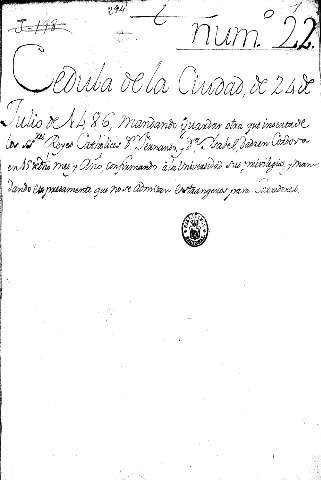 J-198 294 1
num.º 22
Cedula de la Ciudad, de 24 de
Julio de 1486, mandando guardar otra que inserta de
los SSres Reyes Catholicos Dn Fernando, y Dª Isabel, dada en Cordova
en 15 de dho mes y Año, confirmando à la Universidad sus privilegios, y man-
dando expresamente que no se admitan estrangeros para